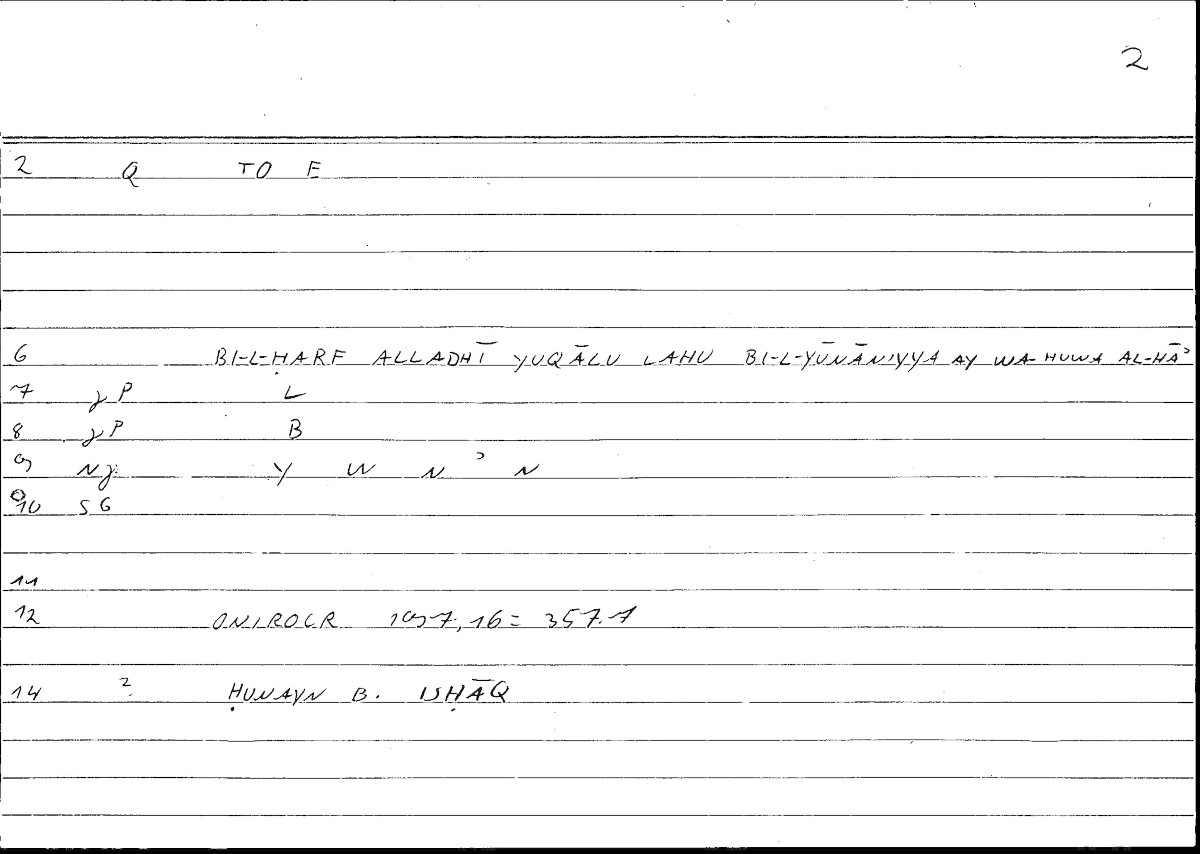 2
2 Q TO E
6 BI-L-ḤARF ALLADHĪ YUQĀLU LAHU BI-L-YŪNĀNIYYA AY WA-HUWA AL-HĀʾ
7 P L
8 P B
9 Y W N ʾ N
10 SG
11
12 ONIROCR 197,16 = 357.7
14 2 ḤUNAYN B. ISḤĀQ